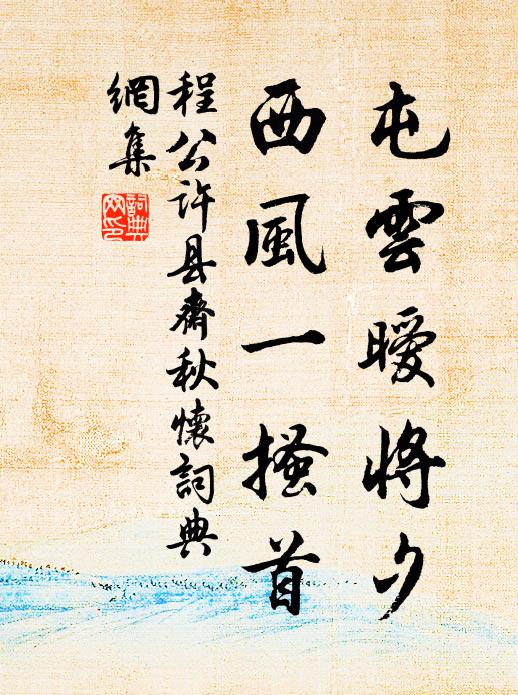 屯雲曖將夕
西風一搔首
程公许县齋秋懷詞典
網集
詞典
网印